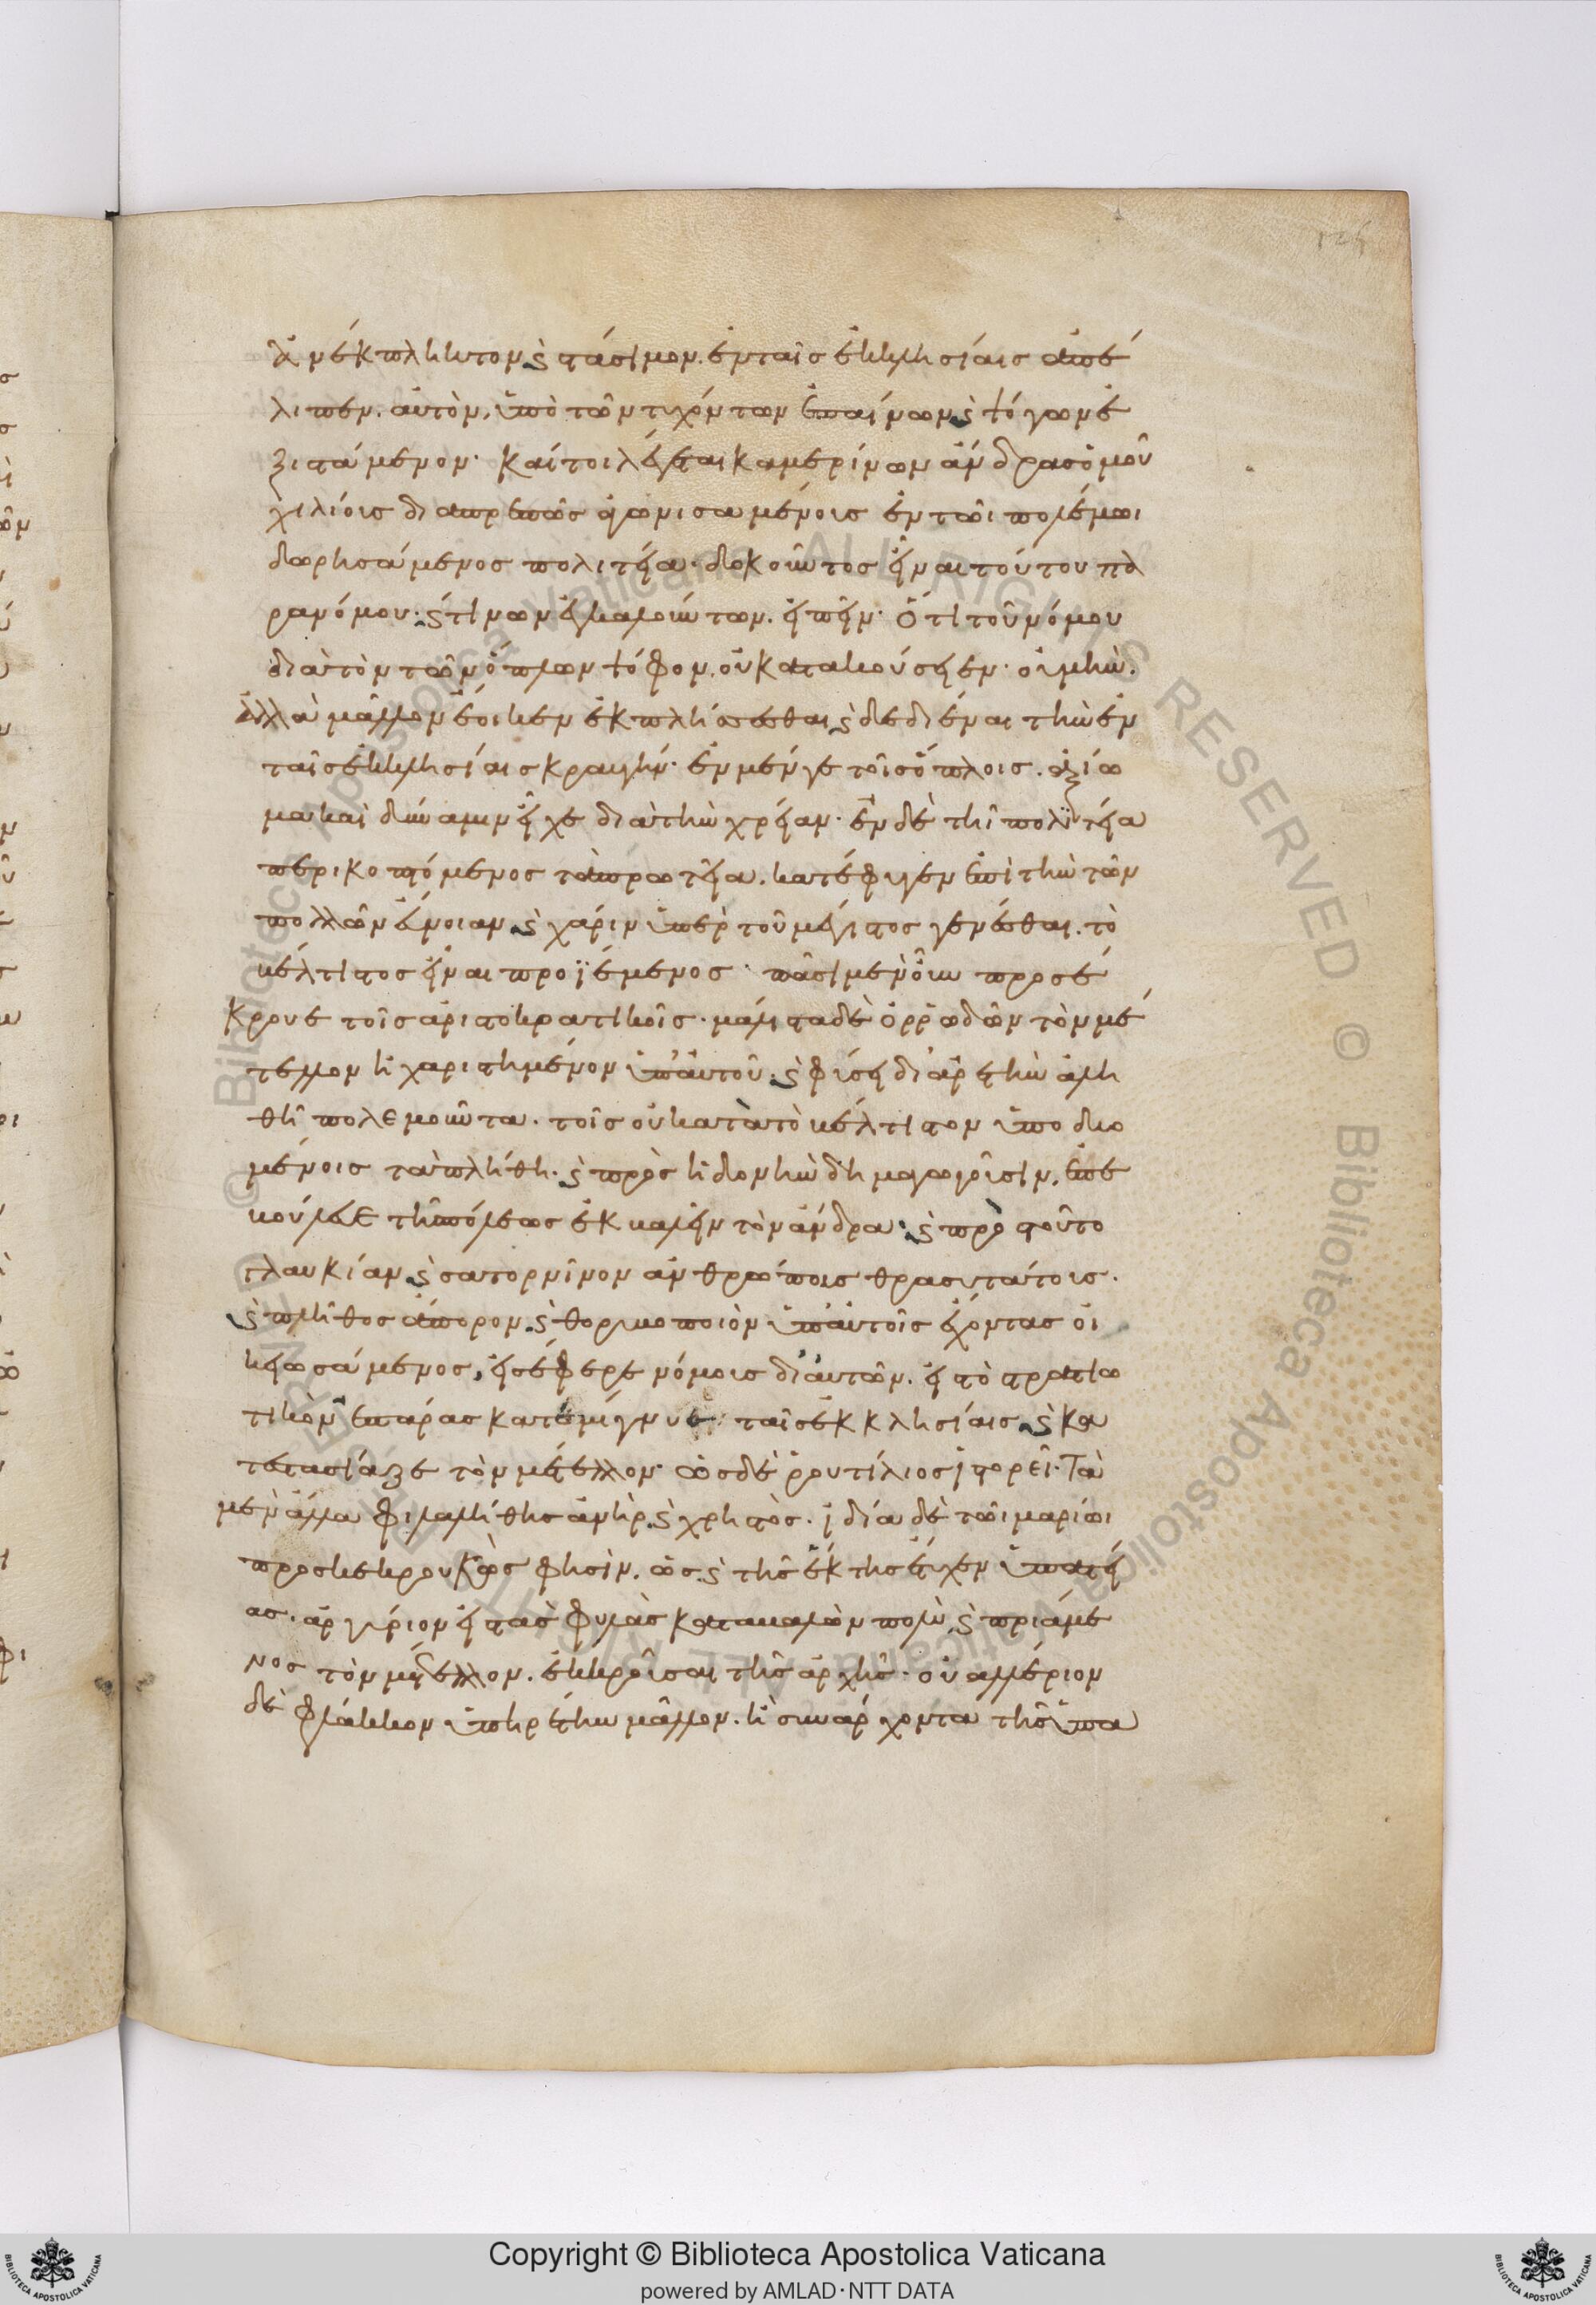 ἀνέκπληκτον ϗ στάσιμον ἐν ταῖς ἐκκλησίαις ἀπέ
λιπεν. αὐτὸν, ὑπὸ τῶν τυχόντων ἐπαίνων ϗ ψόγων ἐ
ξιστάμενον· καίτοι λέγεται καμερίνων ἄνδρας ὁμοῦ
χιλίους διαπρεπῶς ἀγωνισαμένους ἐν τῶι πολέμωι
δωρησάμενος πολιτεία· δοκοῦντος εἶναι τούτου πα
ρανόμου· ϗ τινων ἐγκαλούντων. εἰπεῖν· ὅτι τοῦ νόμου
διὰ τὸν τῶν ὅπλων ψόφον. οὐ κατακούσειεν· οὐ μὴν.
ἀλλὰ μᾶλλον ἔοικεν ἐκπλήσσεσθαι ϗ δεδιέναι τὴν ἐν
ταῖς ἐκκλησίαις κραυγήν· ἐν μέν γε τοῖς ὅπλοις. ἀξίω
μα καὶ δύναμιν εἶχε διὰ τὴν χρείαν· ἐν δὲ τῆ πολιτεία
περικοπτόμενος τὰ πρωτεῖα. κατέφυγεν ἐπὶ τὴν τῶν
πολλῶν εὔνοιαν ϗ χάριν ὑπὲρ τοῦ μέγιστος γενέσθαι. τὸ
βέλτιστος εἶναι προϊέμενος· πᾶσι μὲν οὖν προσέ
κρουε τοῖς ἀριστοκρατικοῖς· μάλιστα δὲ ὀρρωδῶν τὸν μέ
τελλον ἠχαριστημένον ὑπ' αὐτοῦ· ϗ φύσει δι' ἀρετὴν ἀλη
θῆ πολεμοῦντα· τοῖς οὐ κατὰ τὸ βέλτιστον ὑποδυο
μένοις τὰ πλήθη· ϗ πρὸς ἡδονὴν δημαγωγοῦσιν. ἐπε
βούλευε τῆς πόλεως ἐκβαλεῖν τὸν ἄνδρα· ϗ πρὸς τοῦτο
γλαυκίαν ϗ σατορνῖνον ἀνθρώπους θρασυτάτους.
ϗ πλῆθος ἄπορον ϗ θορυβοποιὸν ὑπ' αὐτοῖς ἔχοντας οἰ
κειωσάμενος, εἰσέφερε νόμους δι' αὐτῶν. ϗ τὸ στρατιω
τικὸν ἐπάρας κατεμίγνυε ταῖς ἐκκλησίαις ϗ κα
τεστασίαζε τὸν μέτελλον· ὡς δὲ ῥουτίλιος ἱστορεῖ· τὰ
μὲν ἄλλα φιλαλήθης ἀνὴρ ϗ χρηστὸς· ἰδία δὲ τῶι μαρίωι
προσκεκρουκὼς φησὶν. ὡς ϗ τῆς ἕκτης ἔτυχεν ὑπατεί
ας. ἀργύριον εἰς τὰς φυλὰς καταβαλὼν πολὺ ϗ πριάμε
νος τὸν μέτελλον. ἐκκροῦσαι τῆς ἀρχῆς· οὐαλλέριον
δὲ φλάκκον ὑπηρέτην μᾶλλον. ἢ συνάρχοντα τῆς ὑπα